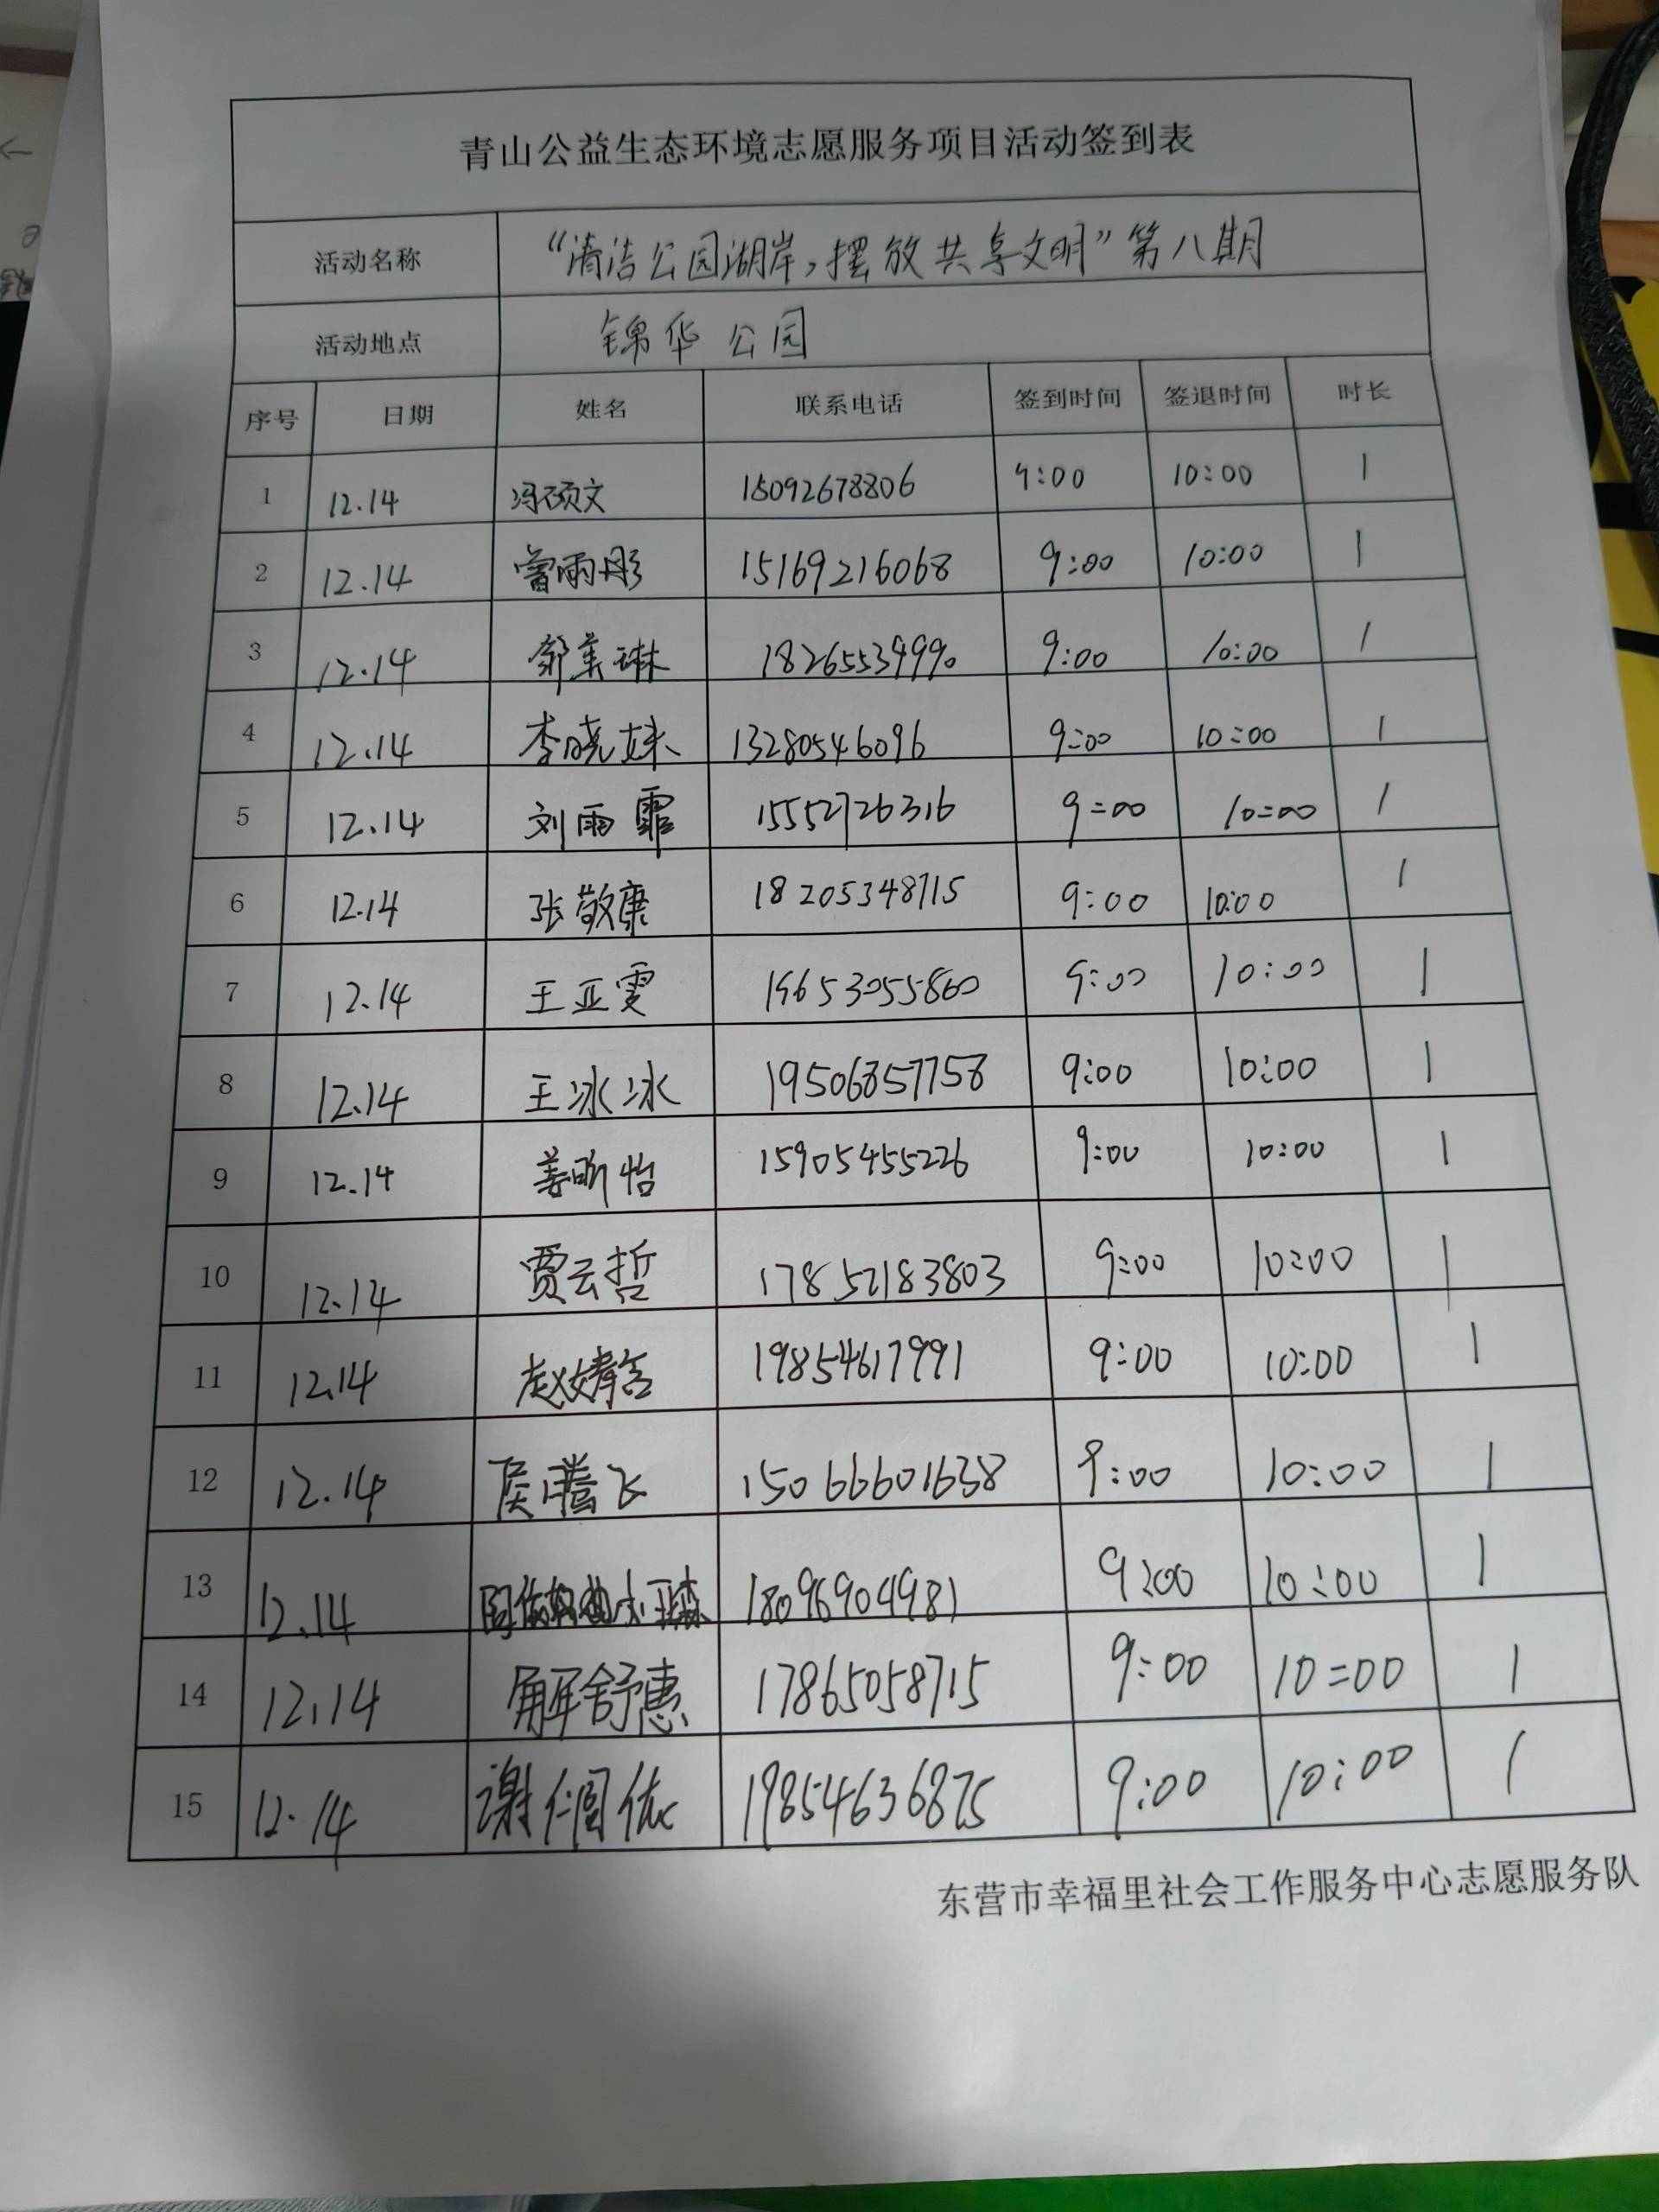 青山公益生态环境志愿服务项目活动签到表
活动名称 “清洁公园湖岸，摆放共享文明”第八期
活动地点 锦华公园
序号 日期 姓名 联系电话 签到时间 签退时间 时长
1 12.14 冯硕文 15092678806 9:00 10:00 1
2 12.14 曾雨彤 15169216068 9:00 10:00 1
3 12.14 邹美琳 18265539990 9:00 10:00 1
4 12.14 李晓妹 13280546096 9:00 10:00 1
5 12.14 刘雨霏 15552726316 9:00 10:00 1
6 12.14 张敬康 18205348715 9:00 10:00 1
7 12.14 王亚雯 19653055860 9:00 10:00 1
8 12.14 王冰冰 19506857758 9:00 10:00 1
9 12.14 姜昕怡 15905455226 9:00 10:00 1
10 12.14 贾云哲 17852183803 9:00 10:00 1
11 12.14 19854617991 9:00 10:00 1
12 12.14 侯腾飞 15066601638 9:00 10:00 1
13 12.14 18096904981 9:00 10:00 1
14 12.14 解舒惠 17865058715 9:00 10:00 1
15 12.14 19854636875 9:00 10:00 1
东营市幸福里社会工作服务中心志愿服务队